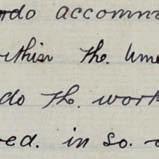 do accomm
within the time
do the work
ed. in so.